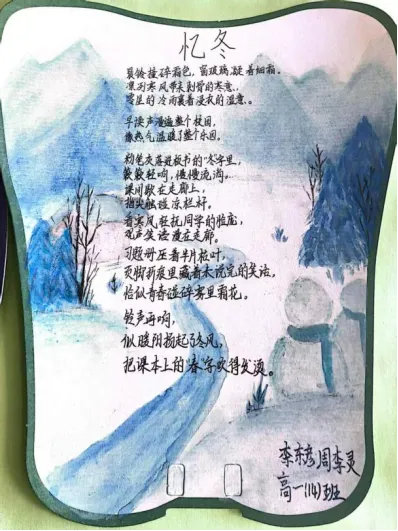 忆冬
晨铃撞碎霜色，窗玻璃凝着细霜。
凛冽寒风带来刺骨的寒意，
零星的冷雨裹着浸衣的湿意。
早读声漫遍整个校园，
像热气温暖了整个乐园，
粉笔灰落进板书的"寒"字里，
散散轻响，慢慢流淌。
课间歇在走廊上，
指尖触碰凉栏杆。
看寒风轻抚同学的脸庞，
欢声笑语漫在走廊。
习题册压着半片枯叶，
页脚折痕里藏着未说完的笑话，
恰似青春碰碎雾里霜花。
铃声再响，
似暖阳扬起了冬风，
把课本上的"春"字吹得发烫。
李东彦周李灵
高一(14)班